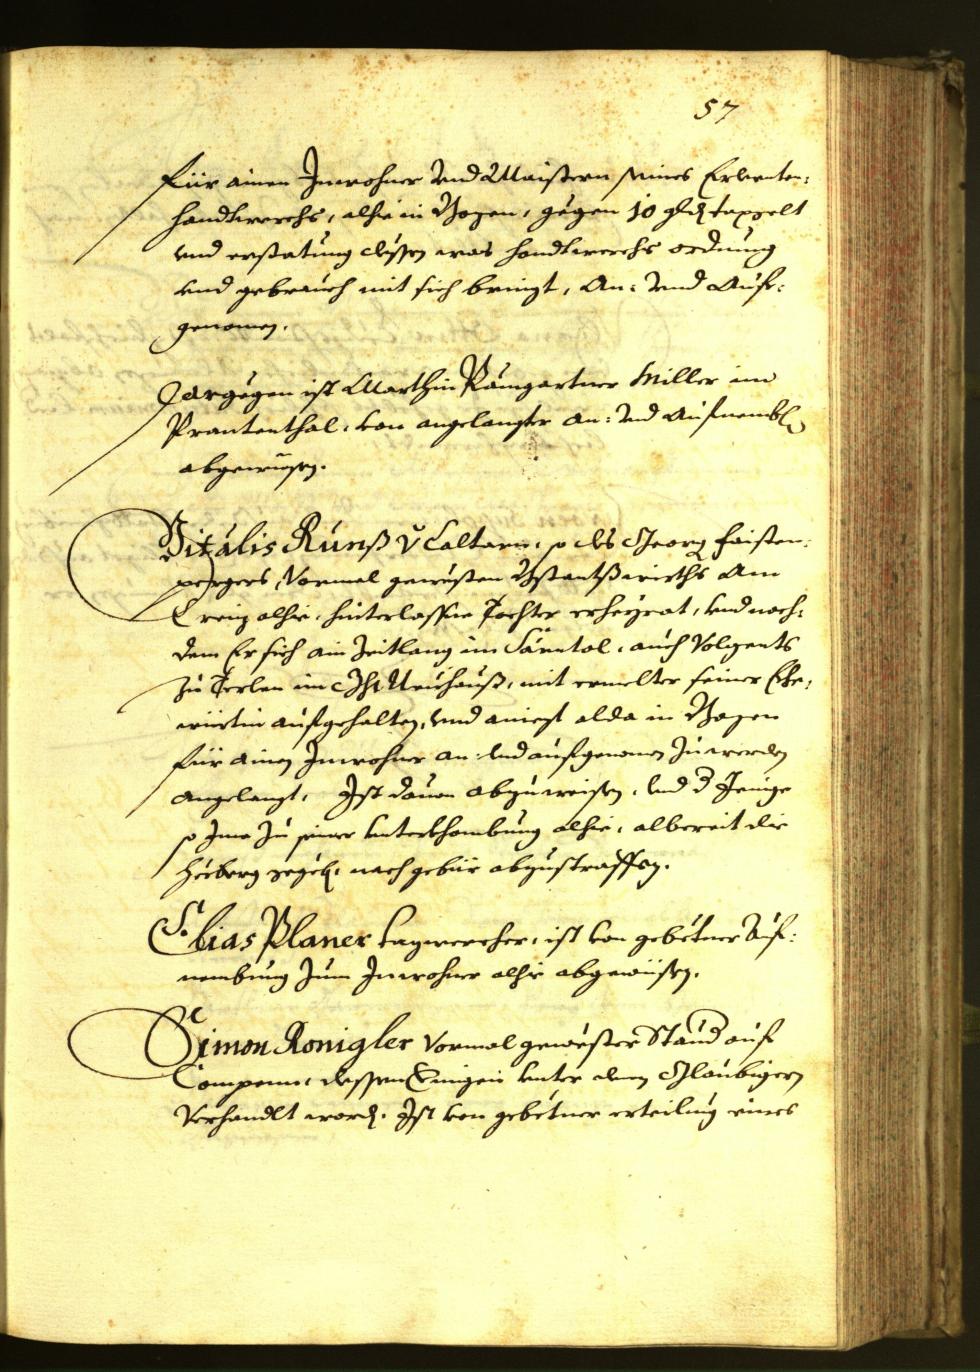 57
für ainen Inwohner vnd Maistern seines Erlernten-
handtwerchs, alhie in Bozen, gegen 10 gld. taxgelt
vnd erstatung dessen was handtwerchs ordnung
vnd gebrauch mit sich bringt, An: vnd Auf-
genomen.
Dargegen ist Marthin Paumgartner Miller im
Prantenthal, von angelangter An: vnd Aufnemb
abgewisen.
Vitalis Runß v Caltarn, so des Georg faisten-
pergers, Vormal gewesten Gstattswirths Am
Creiz alhie, hinterlassne Tochter erheyrat, vnd nach-
dem Er sich ain Zeitlang im Särntal, auch Volgents
zu Terlan im Neuhauß, mit ermelter seiner Ehe-
würtin aufgehalten, vnd aniezt alda in Bozen
für ainen Inwohner an: vnd aufgenomen zu werden
angelangt, Ist dauon abzuweisen, vnd d Jenige
so Ime zu seiner vnterkhombung alhie, albereit die
herberg gegeben, nach gebür abzustraffen.
Elias Planer tagwercher, ist von gebetner Auf-
nembung zum Inwohner alhie abgewisen.
Simon Ronigler Vormal gewester auf
Campenn, dessen vnter den Glaubigern
Verhandlt worden, Ist von gebetner erteilung eines